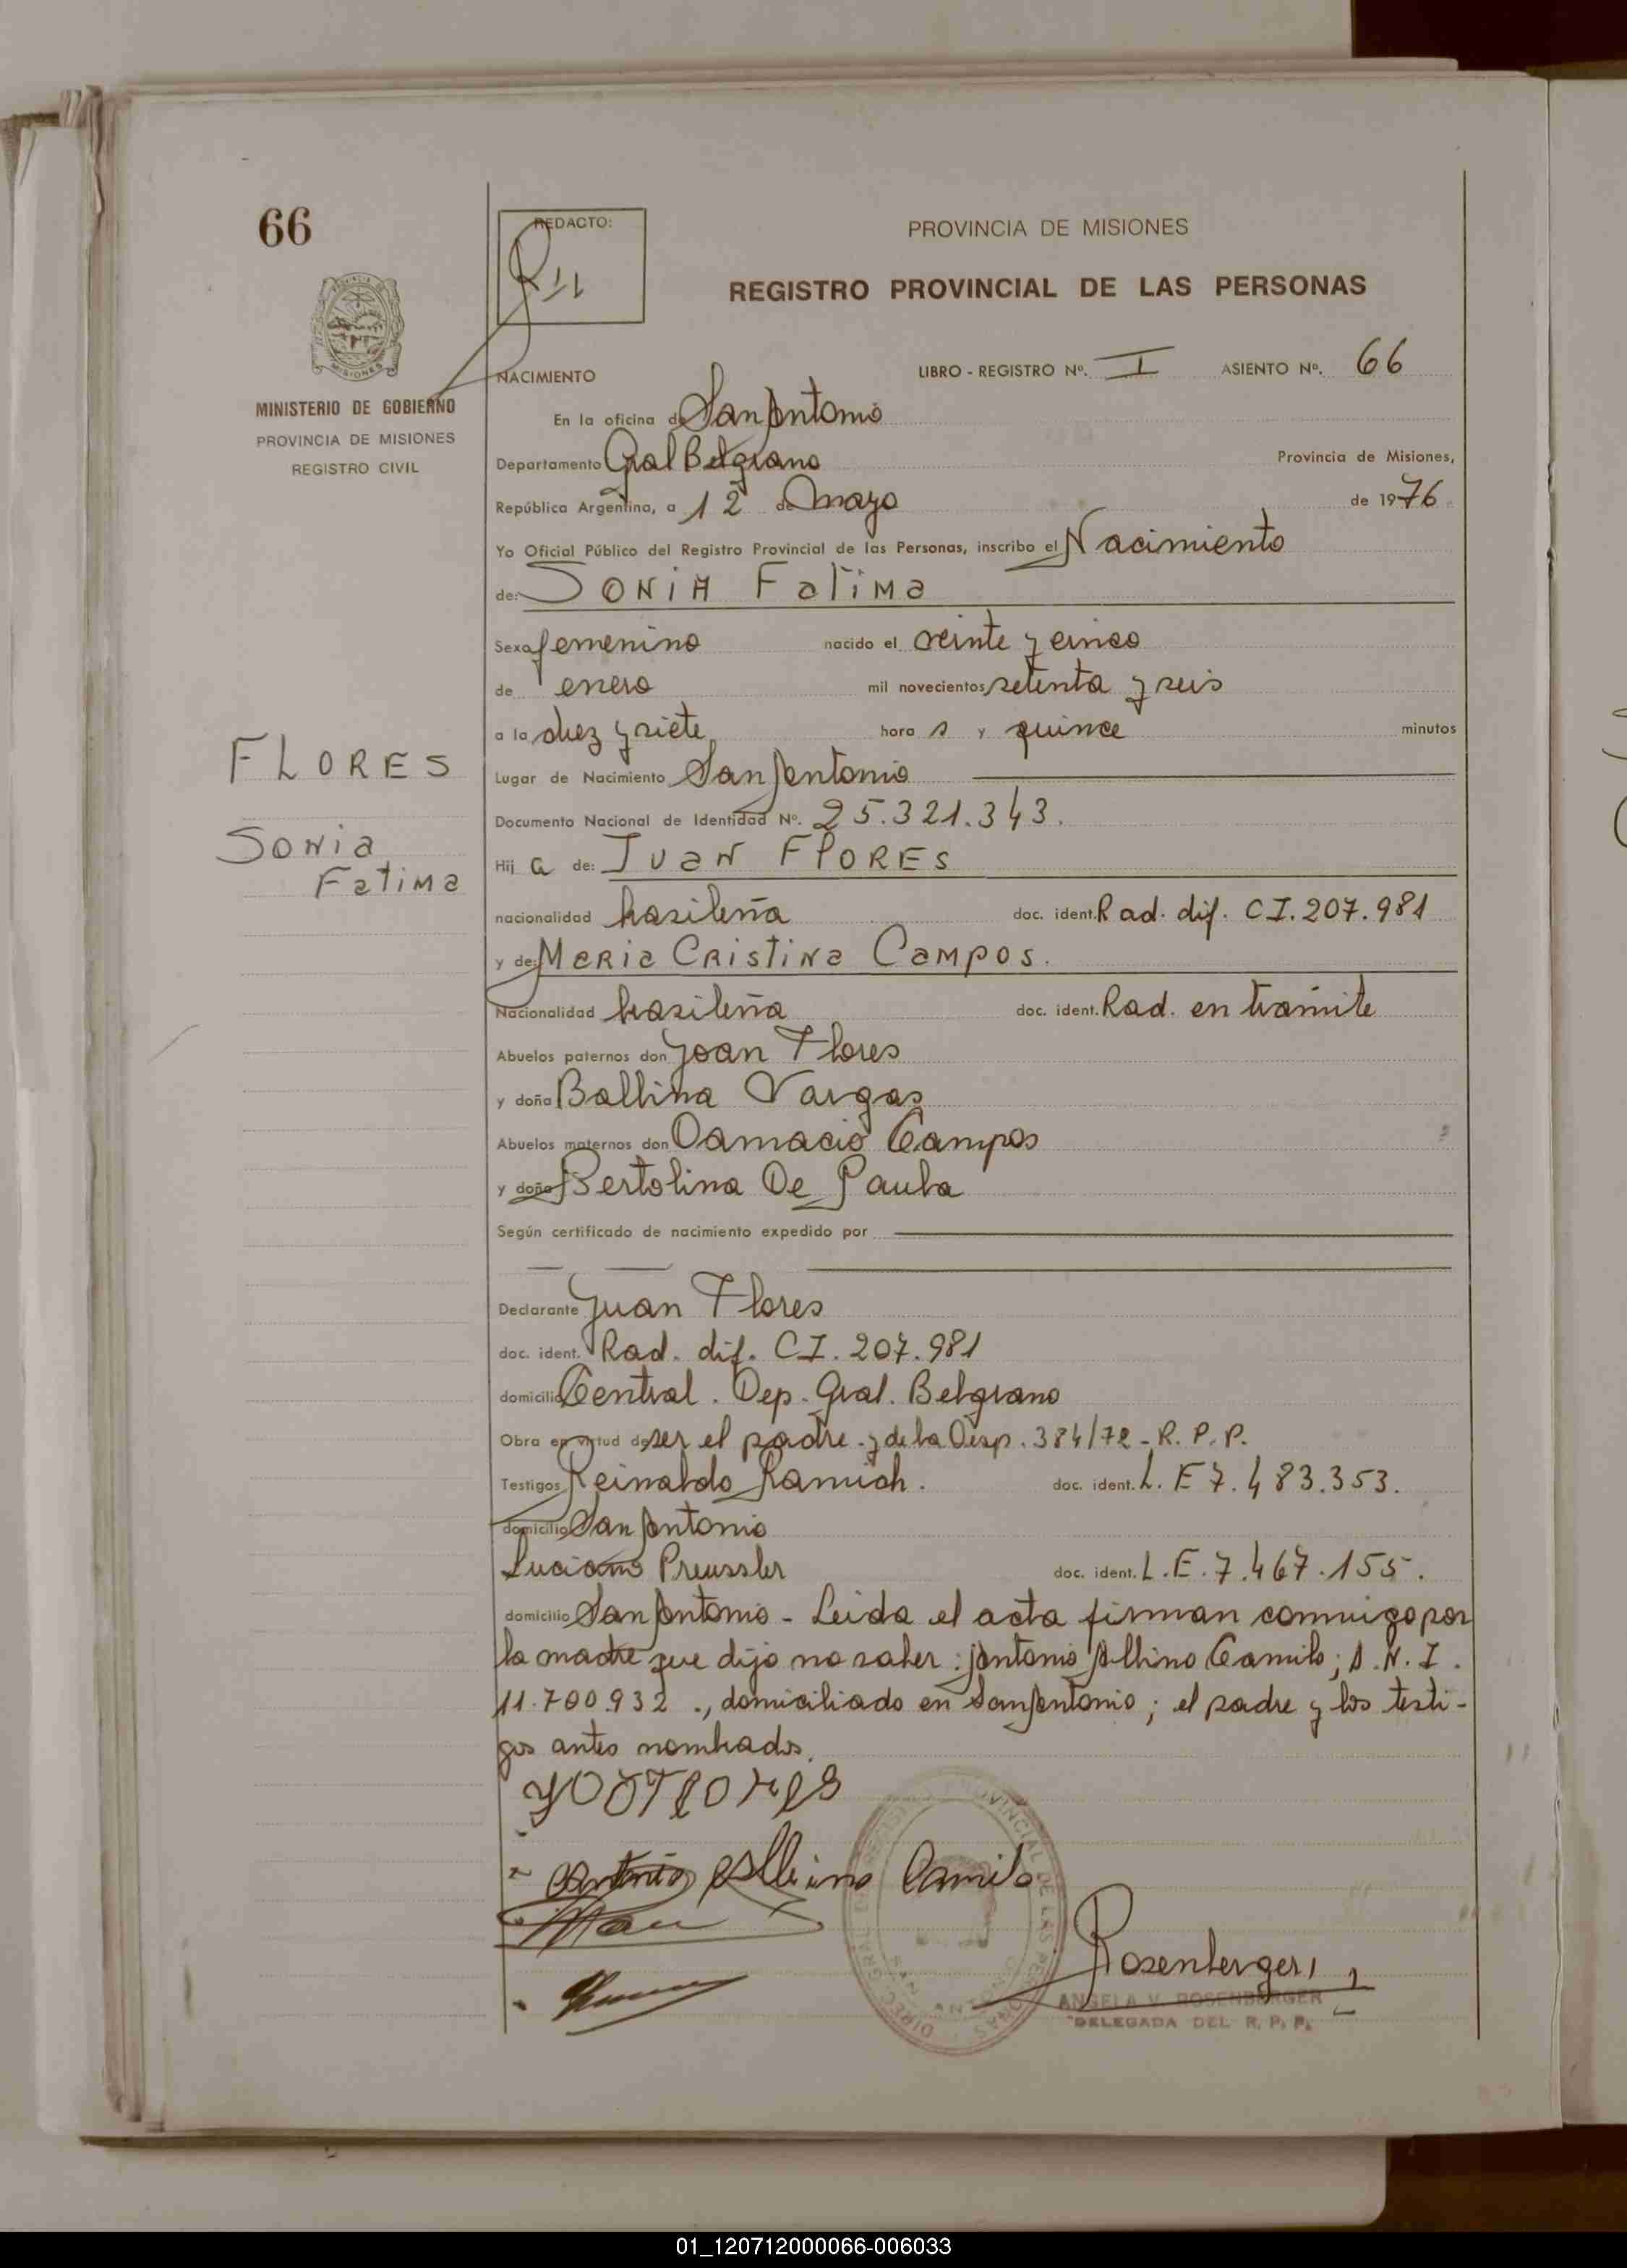 66
REDACTO:
PROVINCIA DE MISIONES
REGISTRO PROVINCIAL DE LAS PERSONAS
MISIONES
MINISTERIO DE GOBIERNO
PROVINCIA DE MISIONES
REGISTRO CIVIL
NACIMIENTO LIBRO - REGISTRO Nº. I ASIENTO Nº. 66
En la oficina de San Antonio
Departamento Gral Belgrano Provincia de Misiones,
República Argentina, a 12 de mayo de 1976
Yo Oficial Público del Registro Provincial de las Personas, inscribo el Nacimiento
de: SONIA Fatima
Sexo femenino nacido el veinte y cinco
de enero mil novecientos setenta y seis
a la diez y siete hora s y quince minutos
FLORES
Sonia
Fatima
Lugar de Nacimiento San Antonio
Documento Nacional de Identidad Nº. 25.321.343.
Hij a de: Juan FlORES
nacionalidad brasileña doc. ident. Rad. dif. CI. 207.981
y de: Maria Cristina Campos.
Nacionalidad brasileña doc. ident. Rad. en tramite
Abuelos paternos don Joan Flores
y doña Ballina Vargas
Abuelos maternos don Damacio Campos
y doña Bertolina De Paula
Según certificado de nacimiento expedido por
Declarante Juan Flores
doc. ident. Rad. dif. CI. 207.981
domicilio Central. Dep. Gral. Belgrano
Obra en virtud de ser el padre y de la Disp. 384/72 - R. P. P.
Testigos Reinaldo Ramich. doc. ident. L. E 7.483.353.
domicilio San Antonio
Luciano Preussler doc. ident. L.E. 7.467.155.
domicilio San Antonio - Leida el acta firman conmigo por
la madre que dijo no saber: Antonio Albino Camilo; D.N.I.
11.700.932., domiciliado en San Antonio; el padre y los testi-
gos antes nombrados.
Antonio Albino Camilo
Rosenberger
ANGELA V. ROSENBERGER
DELEGADA DEL R. P. P.
01_120712000066-006033